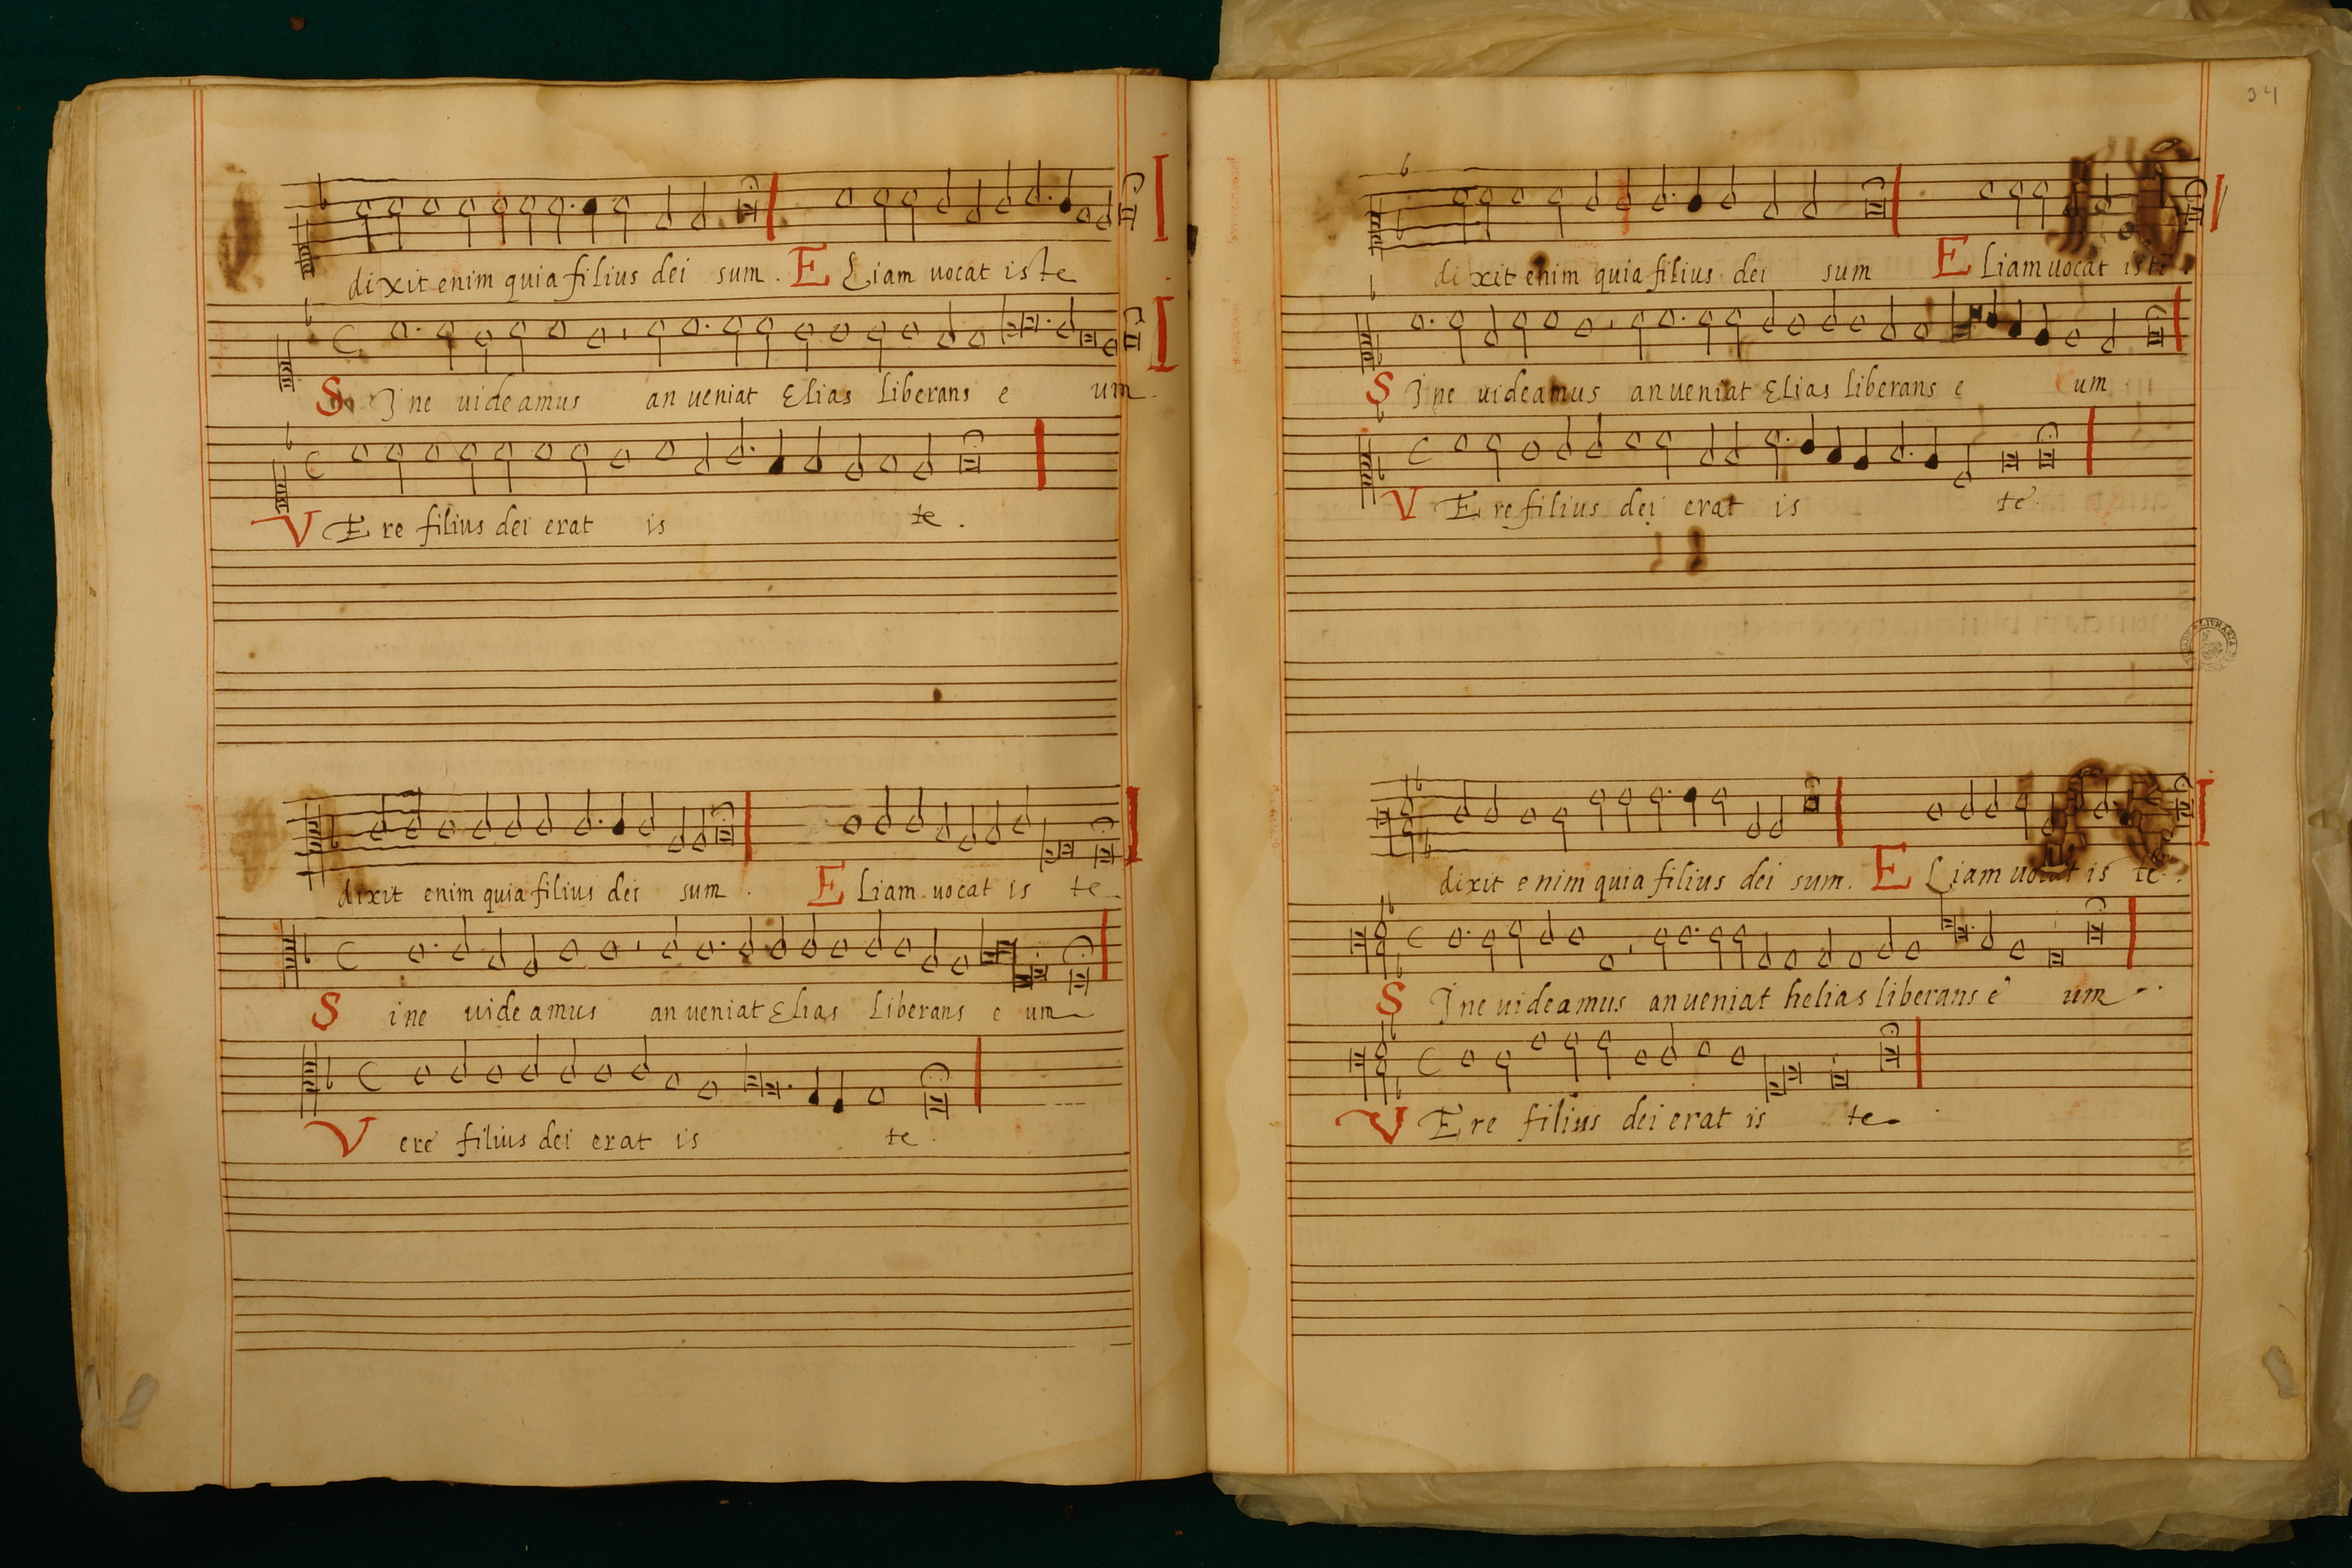 dixit enim quia filius dei sum . ELiam uocat iste
SIne uideamus an ueniat Elias liberans e um
VEre filius dei erat is te .
dixit enim quia filius dei sum . ELiam uocat is te
Sine uideamus an ueniat Elias liberans e um
Vere filius dei erat is te .
dixit enim quia filius dei sum ELiam uocat iste
SIne uideamus an ueniat Elias liberans e um
VEre filius dei erat is te .
dixit enim quia filius dei sum . ELiam uocat is te .
SIne uideamus an ueniat helias liberans e um
VEre filius dei erat is te